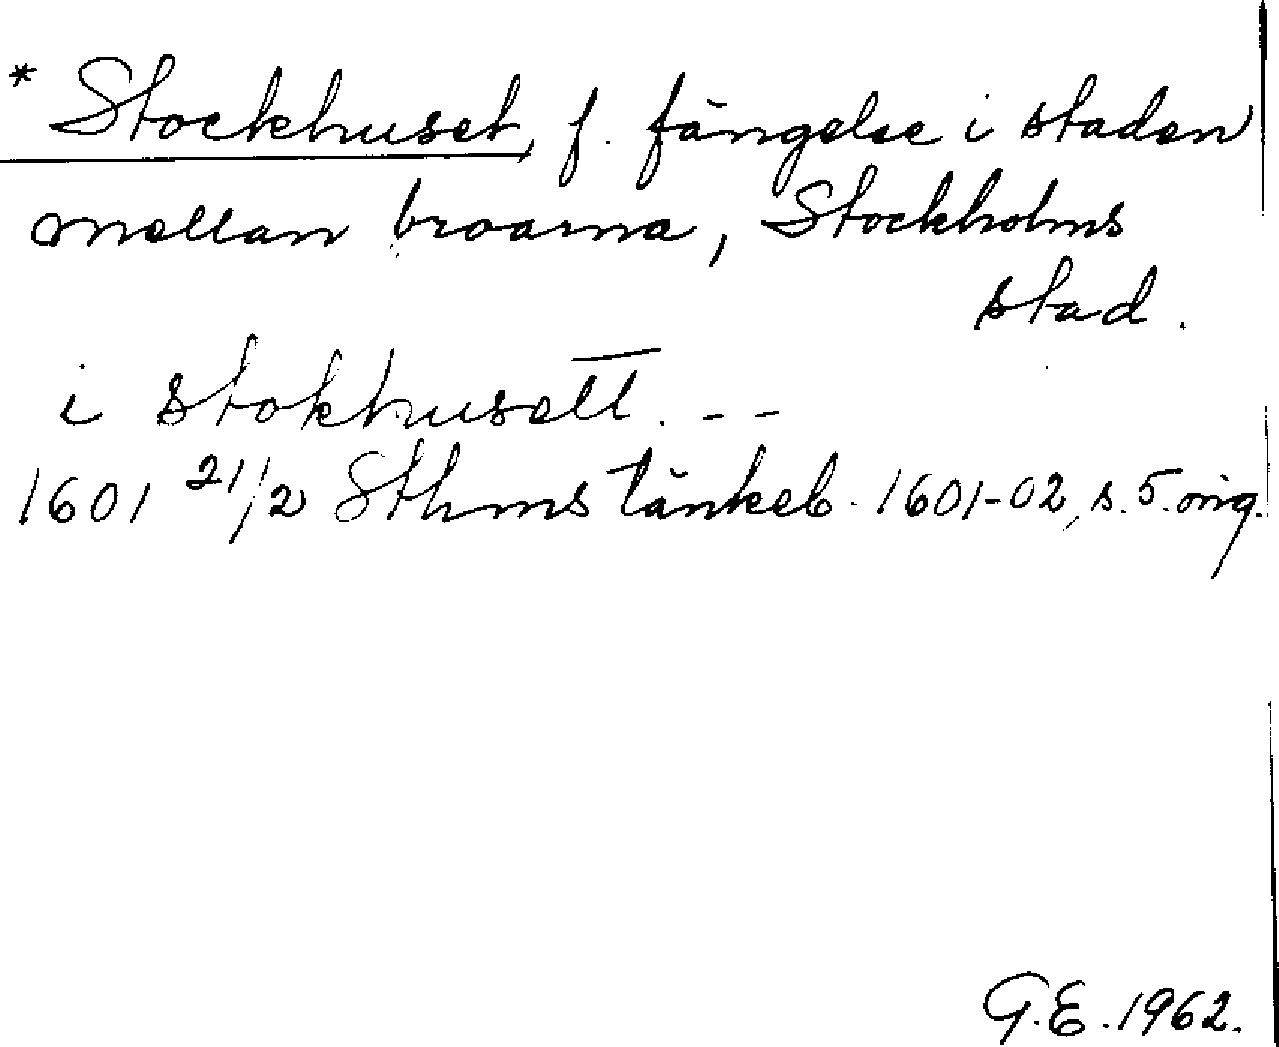 * Stockhuset, f. fängelse i staden
mellan broarna, Stockholms
stad.
i stokhusett. - -
1601 21/2 Sthms tänkeb. 1601-02, s. 5. orig.
G.E. 1962.